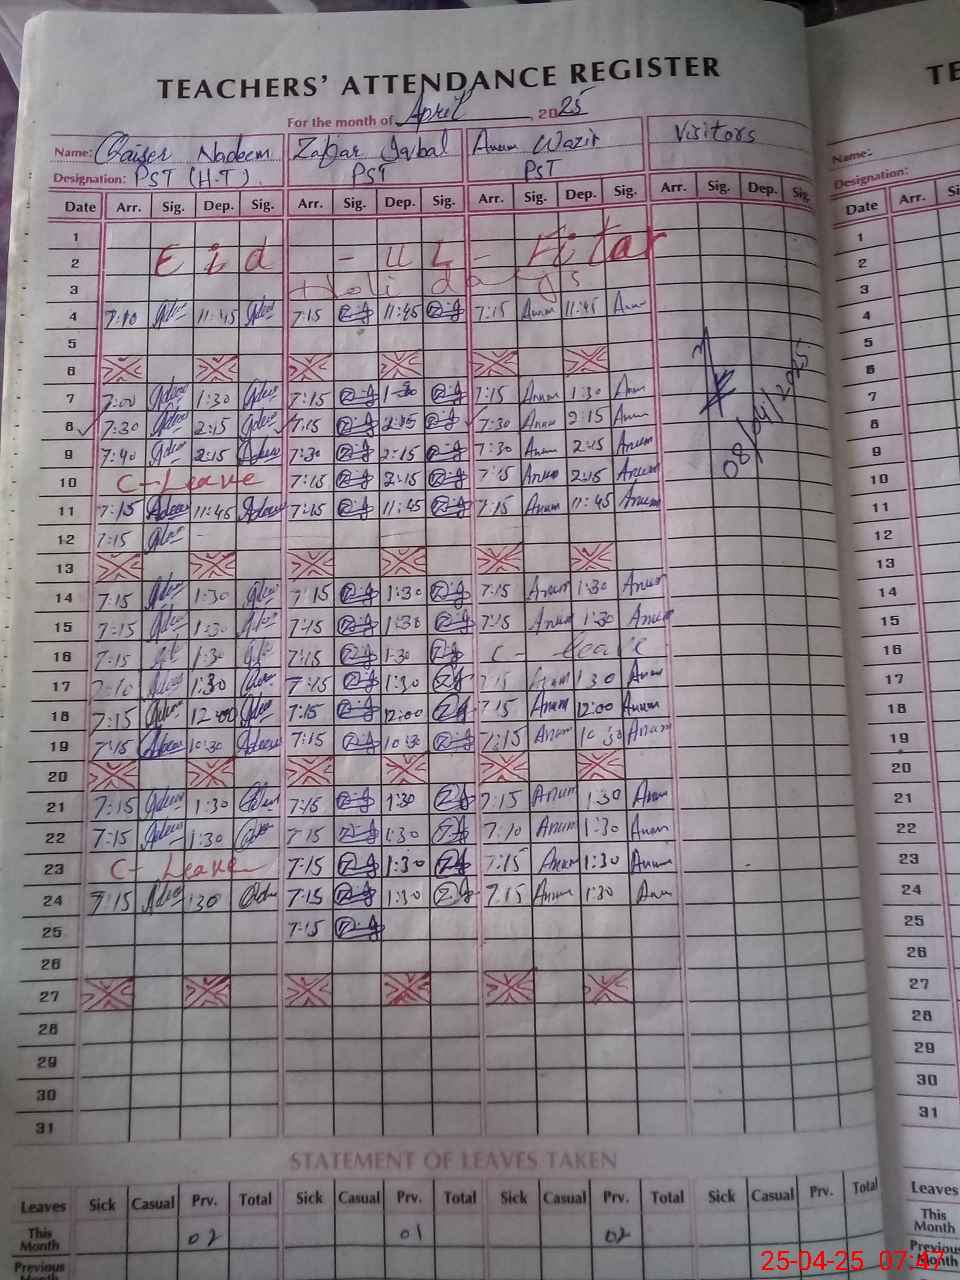 TEACHERS' ATTENDANCE REGISTER
For the month of April, 2025
Name: Qaiser Nadeem Zafar Iqbal Anum Wazir Visitors
Designation: PST (H.T) PST PST
Date Arr. Sig. Dep. Sig. Arr. Sig. Dep. Sig. Arr. Sig. Dep. Sig. Arr. Sig. Dep. Sig.
1
2 Eid - UL - Fitar
3 Holidays
4 7:10 11:45 7:15 11:45 7:15 Anum 11:45 Anum
5
6
7 7:00 1:30 7:15 1:30 7:15 Anum 1:30 Anum
8 7:30 2:15 7:15 2:15 7:30 Anum 2:15 Anum
9 7:40 2:15 7:30 2:15 7:30 Anum 2:15 Anum
10 C-Leave 7:15 2:15 7:15 Anum 2:15 Anum
11 7:15 11:45 7:15 11:45 7:15 Anum 11:45 Anum
12 7:15
13
14 7:15 1:30 7:15 1:30 7:15 Anum 1:30 Anum
15 7:15 1:30 7:15 1:30 7:15 Anum 1:30 Anum
16 7:15 1:30 7:15 1:30 C- leave
17 7:10 1:30 7:15 1:30 7:15 Anum 1:30 Anum
18 7:15 12:00 7:15 12:00 7:15 Anum 12:00 Anum
19 7:15 10:30 7:15 10:30 7:15 Anum 10:30 Anum
20
21 7:15 1:30 7:15 1:30 7:15 Anum 1:30 Anum
22 7:15 1:30 7:15 1:30 7:10 Anum 1:30 Anum
23 C- Leave 7:15 1:30 7:15 Anum 1:30 Anum
24 7:15 1:30 7:15 1:30 7:15 Anum 1:30 Anum
25 7:15
26
27
28
29
30
31
08/04/2025
STATEMENT OF LEAVES TAKEN
Leaves Sick Casual Prv. Total Sick Casual Prv. Total Sick Casual Prv. Total Sick Casual Prv. Total
This Month 02 01 02
Previous Month
TE
Name:-
Designation:
Date Arr.
1
2
3
4
5
6
7
8
9
10
11
12
13
14
15
16
17
18
19
20
21
22
23
24
25
26
27
28
29
30
31
Leaves
This Month
Previous
25-04-25 07:47